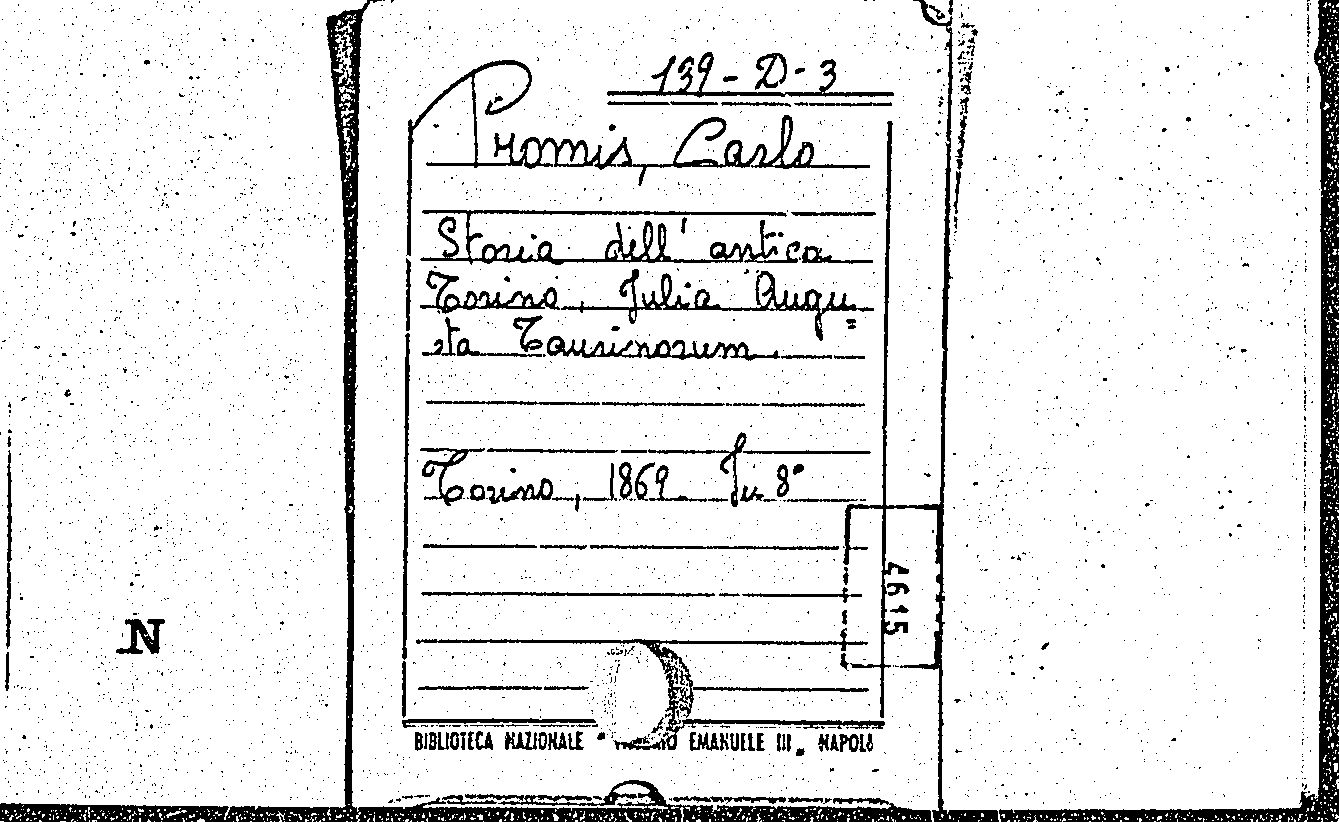 139 - D - 3
Promis, Carlo
Storia dell' antica
Torino, Julia Augu„
sta Taurinorum.
Torino, 1869 In 8°
4615
N
BIBLIOTECA NAZIONALE " EMANUELE III „ NAPOLI